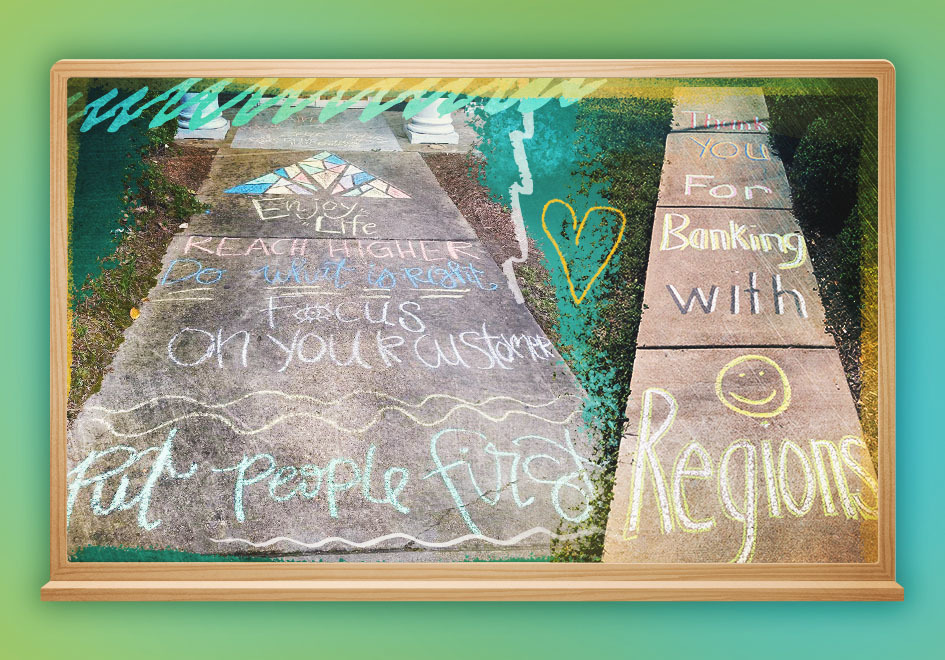 Enjoy
Life
REACH HIGHER
Do what is Right
Focus
On your customer
Put people first
Thank
You
For
Banking
with
Regions